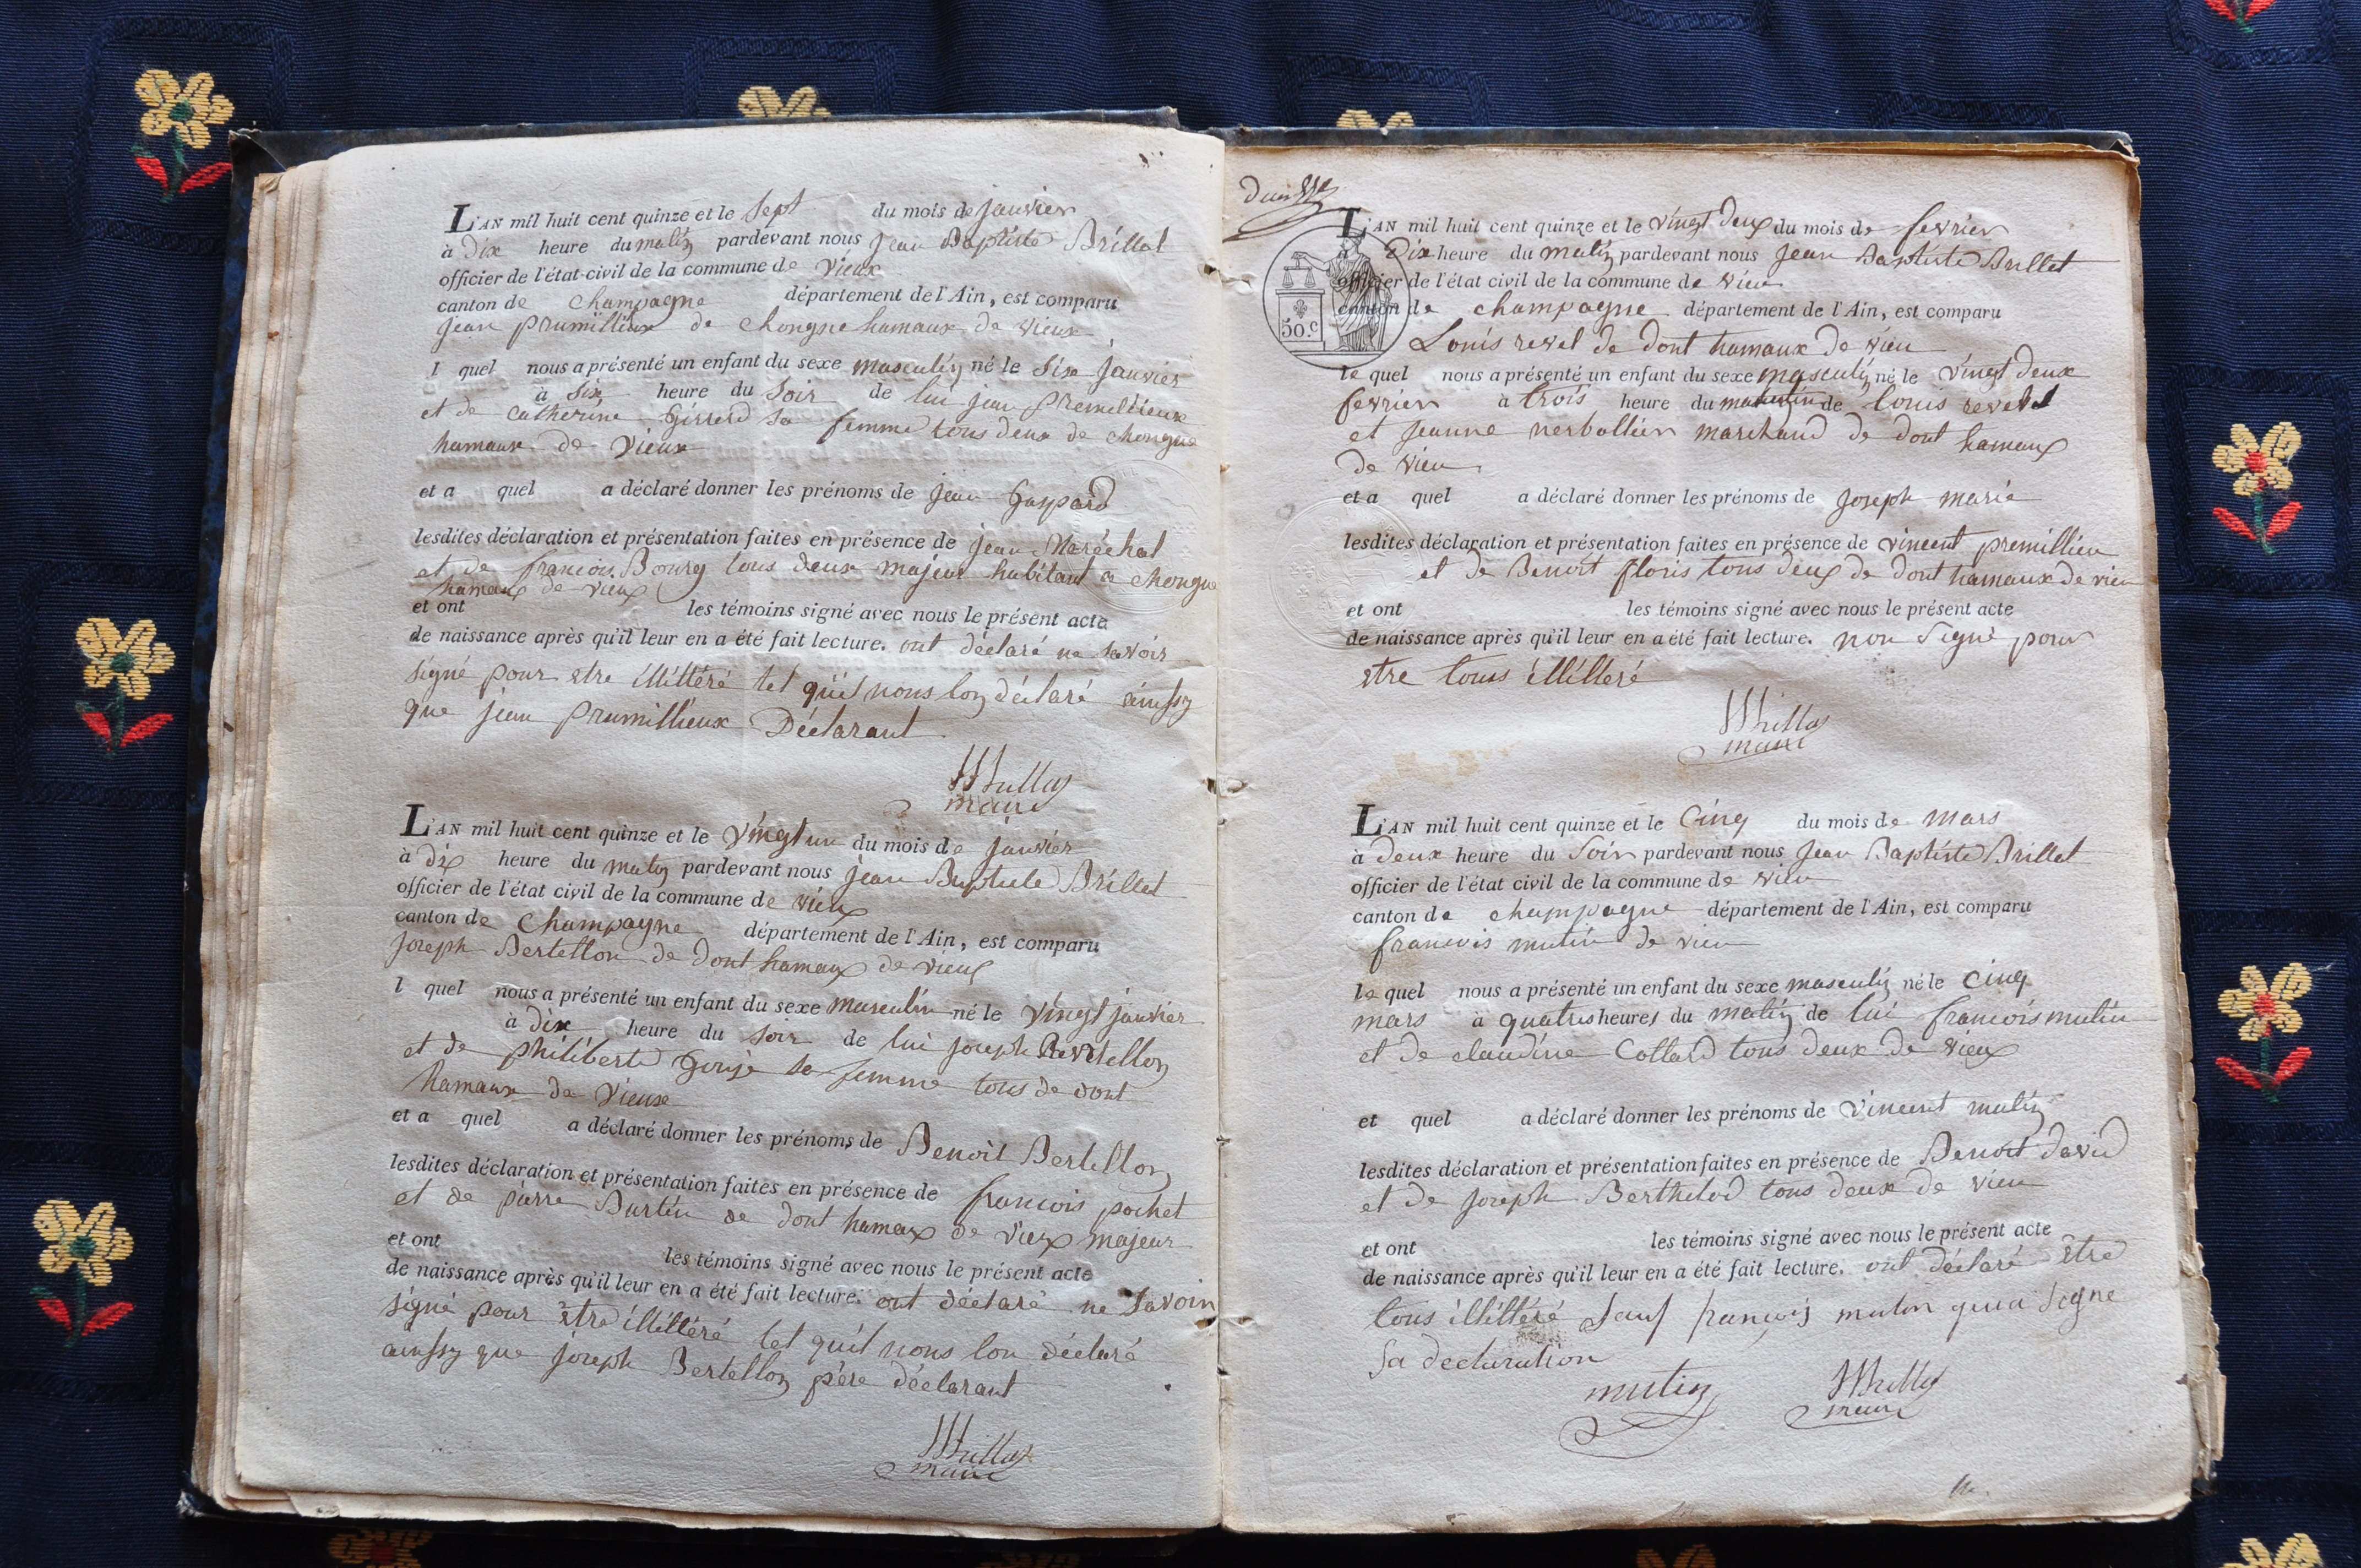 L'AN mil huit cent quinze et le Sept du mois de janvier
à Dix heure du matin pardevant nous jean Baptiste Brillat
officier de l'état-civil de la commune de Vieux
canton de Champagne département de l'Ain, est comparu
jean prumillieux de Chongne hamaux de vieux
l quel nous a présenté un enfant du sexe masculin né le Six janvier
à Six heure du Soir de lui jean premillieux
et de Catherine sa femme tous deux de chongne
hamaux de Vieux
et a quel a déclaré donner les prénoms de jean Gaspard
lesdites déclaration et présentation faites en présence de jean Maréchal
et de francois Bourg tous deux majeur habitant a chongne
hameaux de vieux
et ont les témoins signé avec nous le présent acte
de naissance après qu'il leur en a été fait lecture. ont déclaré ne savoir
signé pour etre illittéré tel qu'il nous lon déclaré ainssy
que jean prumillieux Déclarant
maire
L'AN mil huit cent quinze et le Vingt un du mois de janvier
à dix heure du matin pardevant nous jean Baptiste Brillat
officier de l'état civil de la commune de vieux
canton de Champagne département de l'Ain, est comparu
joseph Bertellon de dont hamaux de vieux
l quel nous a présenté un enfant du sexe masculin né le Vingt janvier
à dix heure du soir de lui joseph Bertellon
et de philiberte sa femme tous de dont
hamaux de Vieux
et a quel a déclaré donner les prénoms de Benoit Bertellon
lesdites déclaration et présentation faites en présence de francois pochet
et de pierre Burtin de dont hamaux de vieux majeur
et ont les témoins signé avec nous le présent acte
de naissance après qu'il leur en a été fait lecture. ont déclaré ne savoir
signé pour être illittéré tel quil nous lon déclaré
ainssy que joseph Bertellon père déclarant
maire
L'AN mil huit cent quinze et le vingt deux du mois de fevrier
Dix heure du matin pardevant nous jean Baptiste Brillet
officier de l'état civil de la commune de vieu
canton de champagne département de l'Ain, est comparu
50.c
Louis revel de dont hamaux de vieu
le quel nous a présenté un enfant du sexe masculin né le vingt deux
fevrier à trois heure du matin de louis revel
et jeanne marchand de dont hamaux
de vieu
et a quel a déclaré donner les prénoms de joseph marie
lesdites déclaration et présentation faites en présence de vincent premillieu
et de Benoit floris tous deux de dont hamaux de vieu
et ont les témoins signé avec nous le présent acte
de naissance après qu'il leur en a été fait lecture. non signé pour
etre tous illitteré
maire
L'AN mil huit cent quinze et le Cinq du mois de mars
à deux heure du Soir pardevant nous jean Baptiste Brillet
officier de l'état civil de la commune de vieu
canton de champagne département de l'Ain, est comparu
francois mutin de vieu
le quel nous a présenté un enfant du sexe masculin né le cinq
mars à quatres heures du matin de lui francois mutin
et de claudine Collard tous deux de vieux
et quel a déclaré donner les prénoms de Vincent mutin
lesdites déclaration et présentation faites en présence de Benoit david
et de joseph Berthelod tous deux de vieu
et ont les témoins signé avec nous le présent acte
de naissance après qu'il leur en a été fait lecture. ont déclaré être
tous illittéré sauf françois mutin qui a signe
sa declaration
mutin
maire